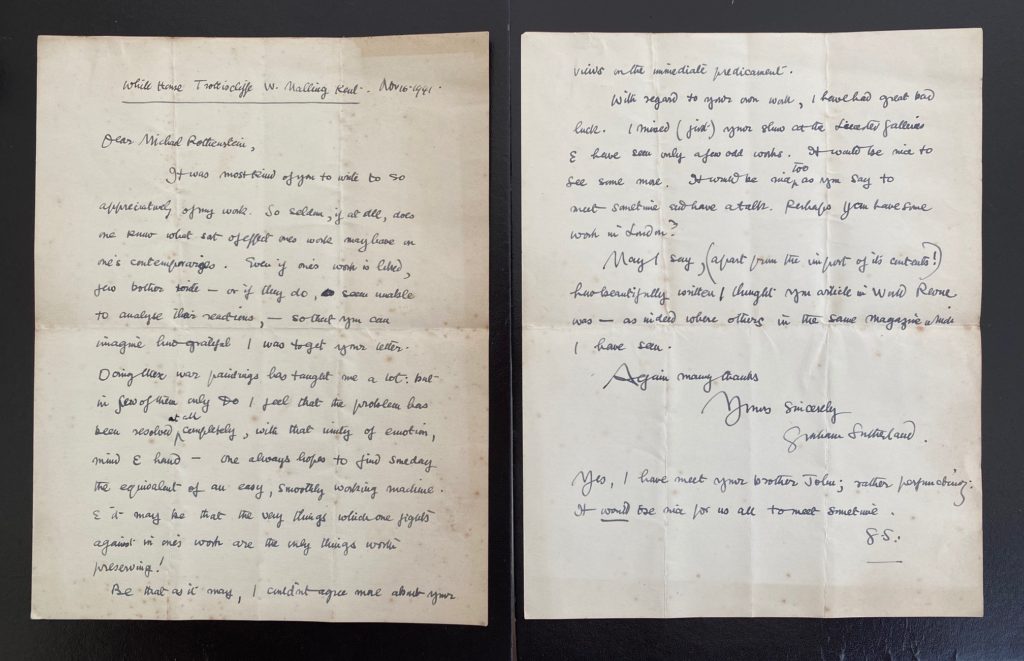 White House Trottiscliffe W. Malling Kent. Nov 10. 1941.
Dear Michael Rothenstein,
It was most kind of you to write to so
appreciatively of my work. So seldom, if at all, does
one know what sort of effect ones work may have on
one's contemporaries. Even if one's work is liked,
few bother to write – or if they do, seem unable
to analyse their reactions, – so that you can
imagine how grateful I was to get your letter.
Doing these war paintings has taught me a lot: but
in few of them only do I feel that the problem has
been resolved at all completely, with that unity of emotion,
mind & hand – one always hopes to find someday
the equivalent of an easy, smoothly working machine.
& it may be that the very things which one fights
against in one's work are the only things worth
preserving!
Be that as it may, I couldn't agree more about your
views on the immediate predicament.
With regard to your own work, I have had great bad
luck. I missed (just) your show at the Leicester Galleries
& have seen only a few odd works. It would be nice to
see some more. It would be nice, too as you say to
meet sometime and have a talk. Perhaps you have some
work in London?
May I say, (apart from the import of its contents!)
how beautifully written I thought your article in World Review
was – as indeed where others in the same magazine which
I have seen.
Again many thanks
Yours Sincerely
Graham Sutherland.
Yes, I have meet your brother John; rather perfunctorily:
It would be nice for us all to meet sometime.
G.S.